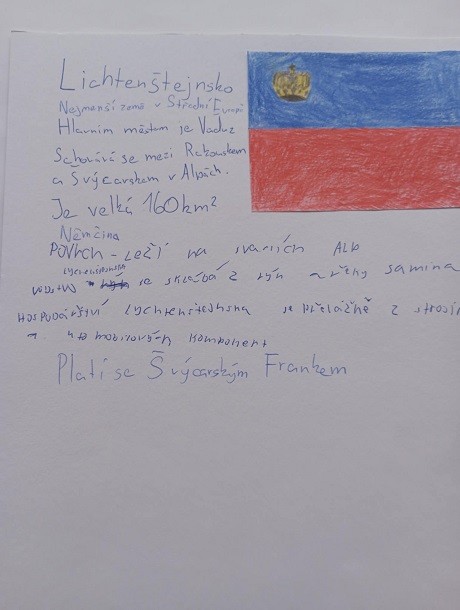 Lichtenštejnsko
Nejmenší země v Střední Evropě
Hlavním městem je Vaduz
Schovává se mezi Rakouskem
a Švýcarskem v Alpách.
Je velká 160km²
Němčina
POVRCH - LEŽÍ na svazích ALP
se skládá z rýn a řeky samina
HOSPODÁŘSTVÍ Lychtenštejnska je převážně z
komponent
Platí se Švýcarským Frankem